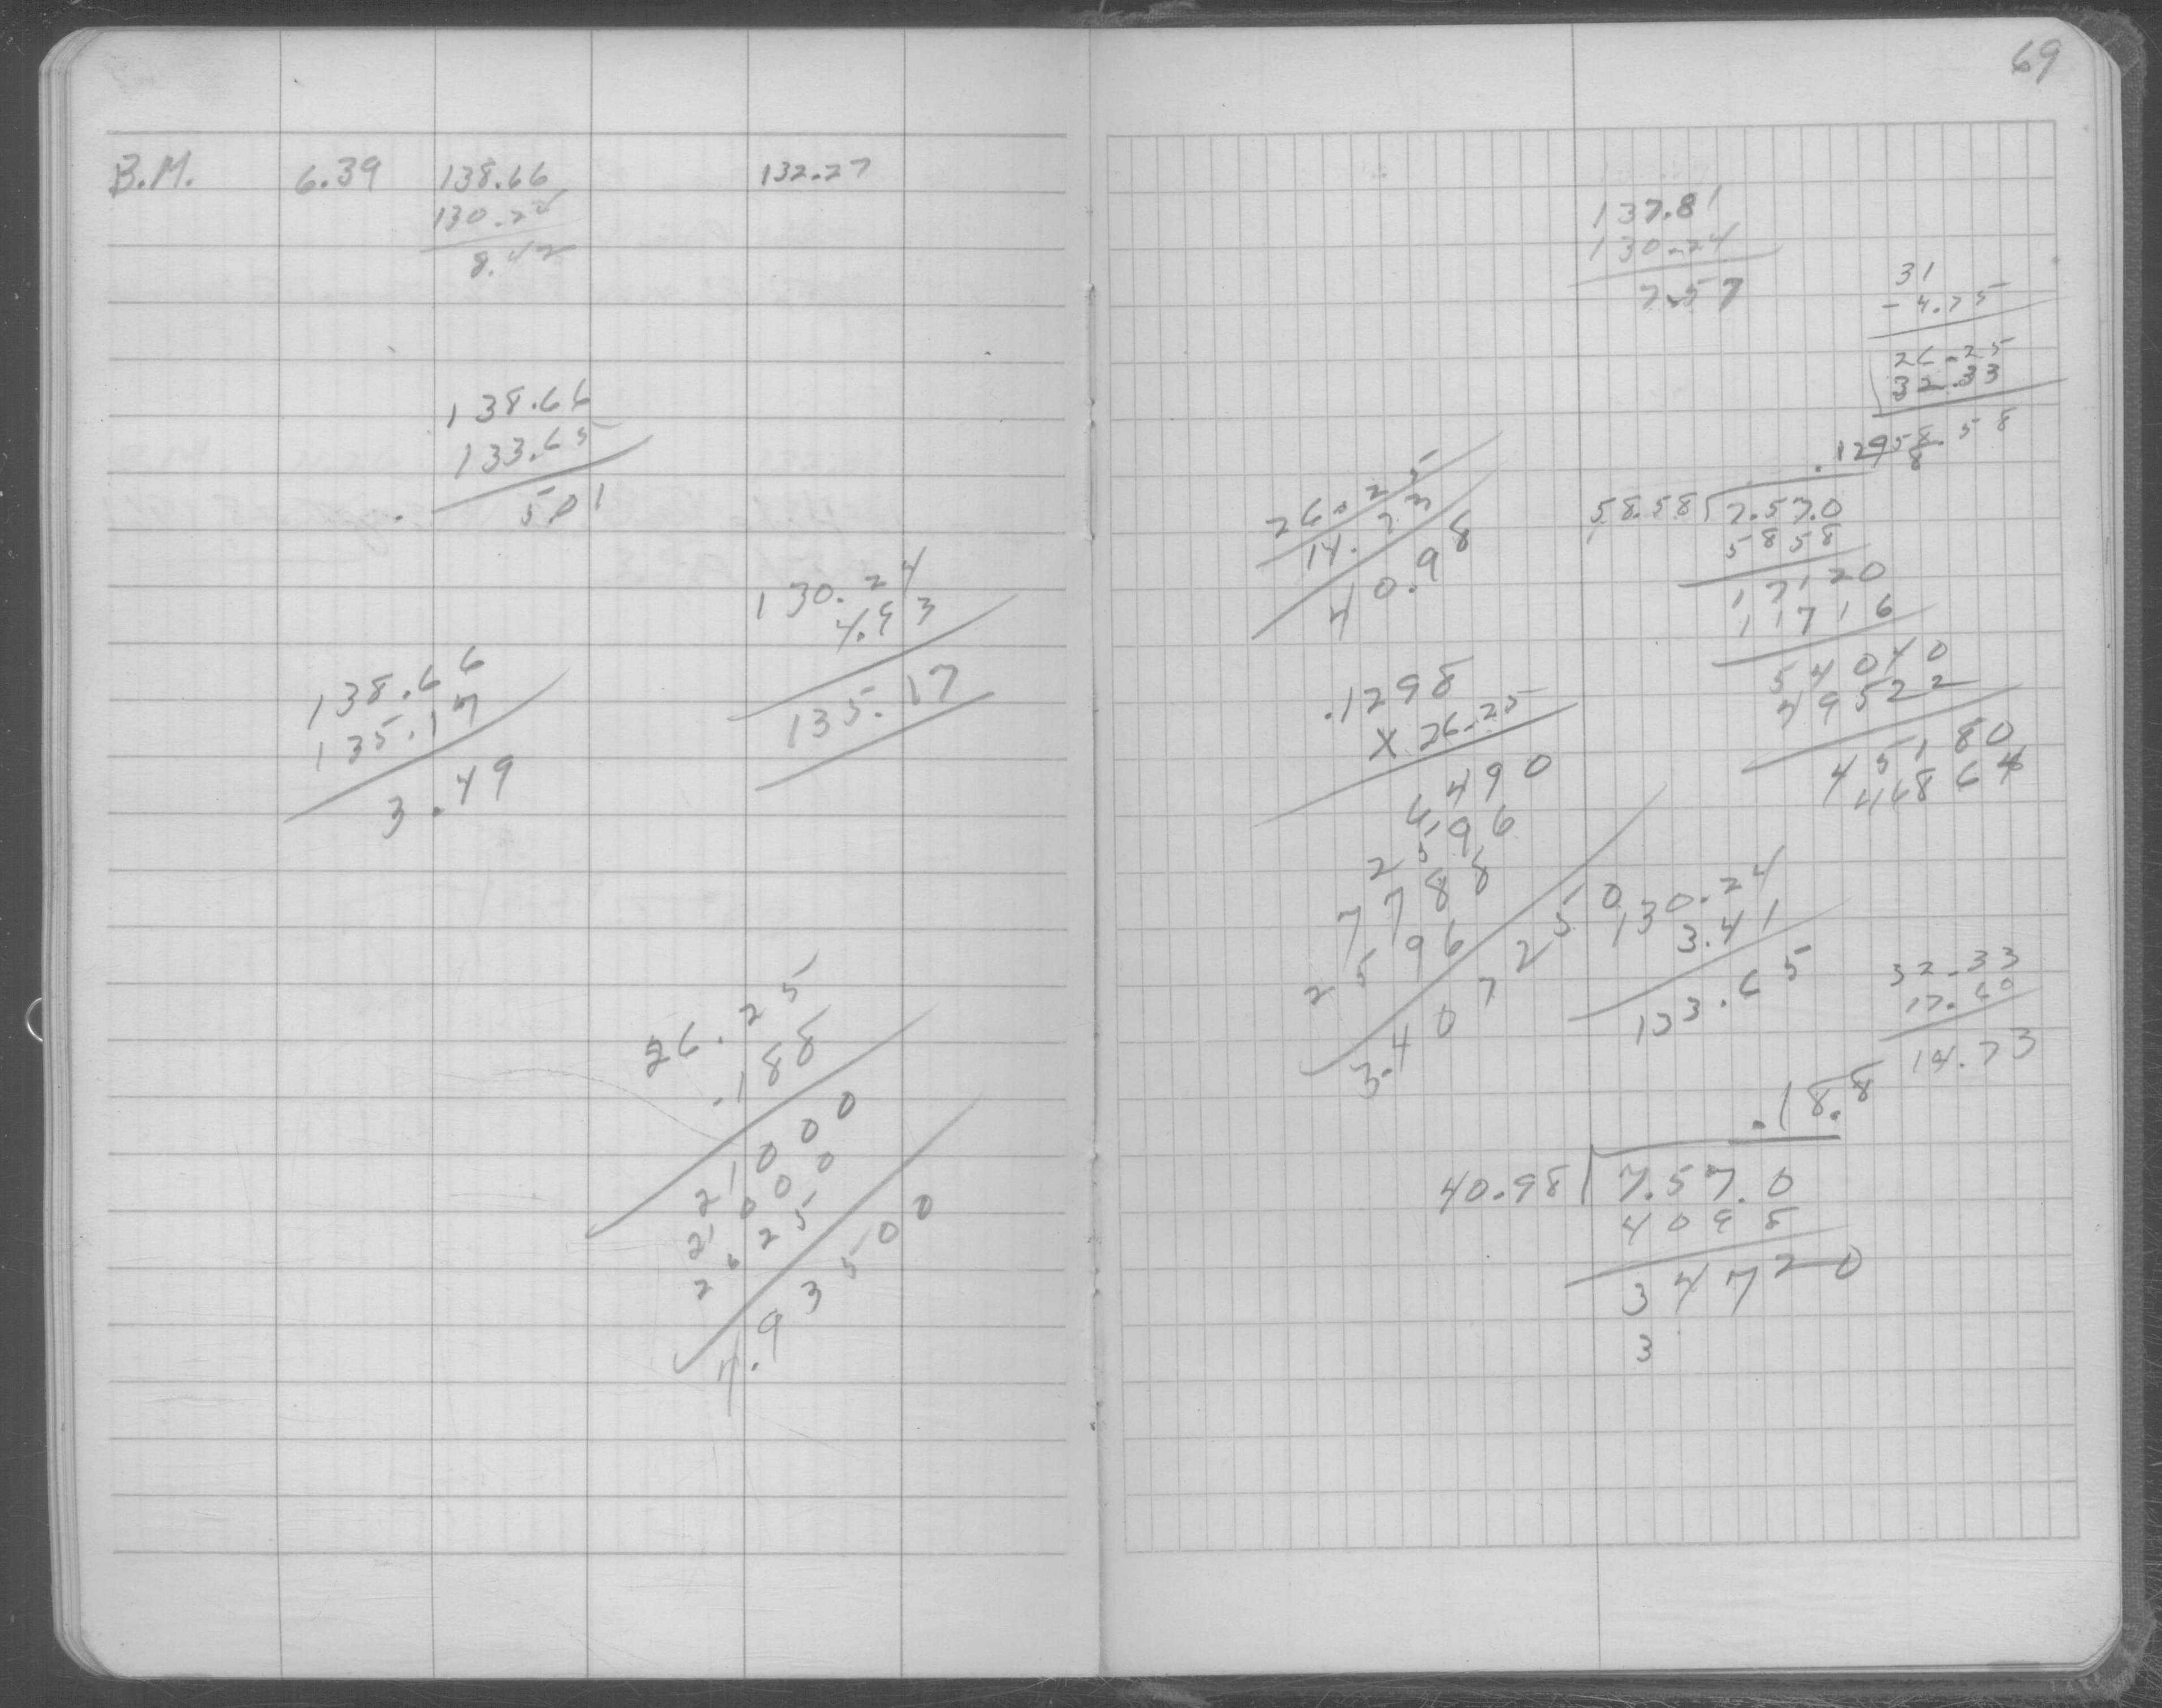 B.M. 6.39 138.66 132.27
130.24
8.42
138.66
133.65
5.01
130.24
4.93
135.17
138.66
135.17
3.49
26.25
.188
21000
21000
2625
4.93500
69
137.81
130.24
7.57
31
- 4.75
26.25
32.33
58.58
26.25
14.73
40.98
.1298
58.58 7.57.0
5858
17120
11716
54040
49522
45180
46864
.1298
X 26.25
6490
2596
7788
2596
3.407250
130.24
3.41
133.65
32.33
17.60
14.73
.18.8
40.98 7.57.0
4098
34720
3